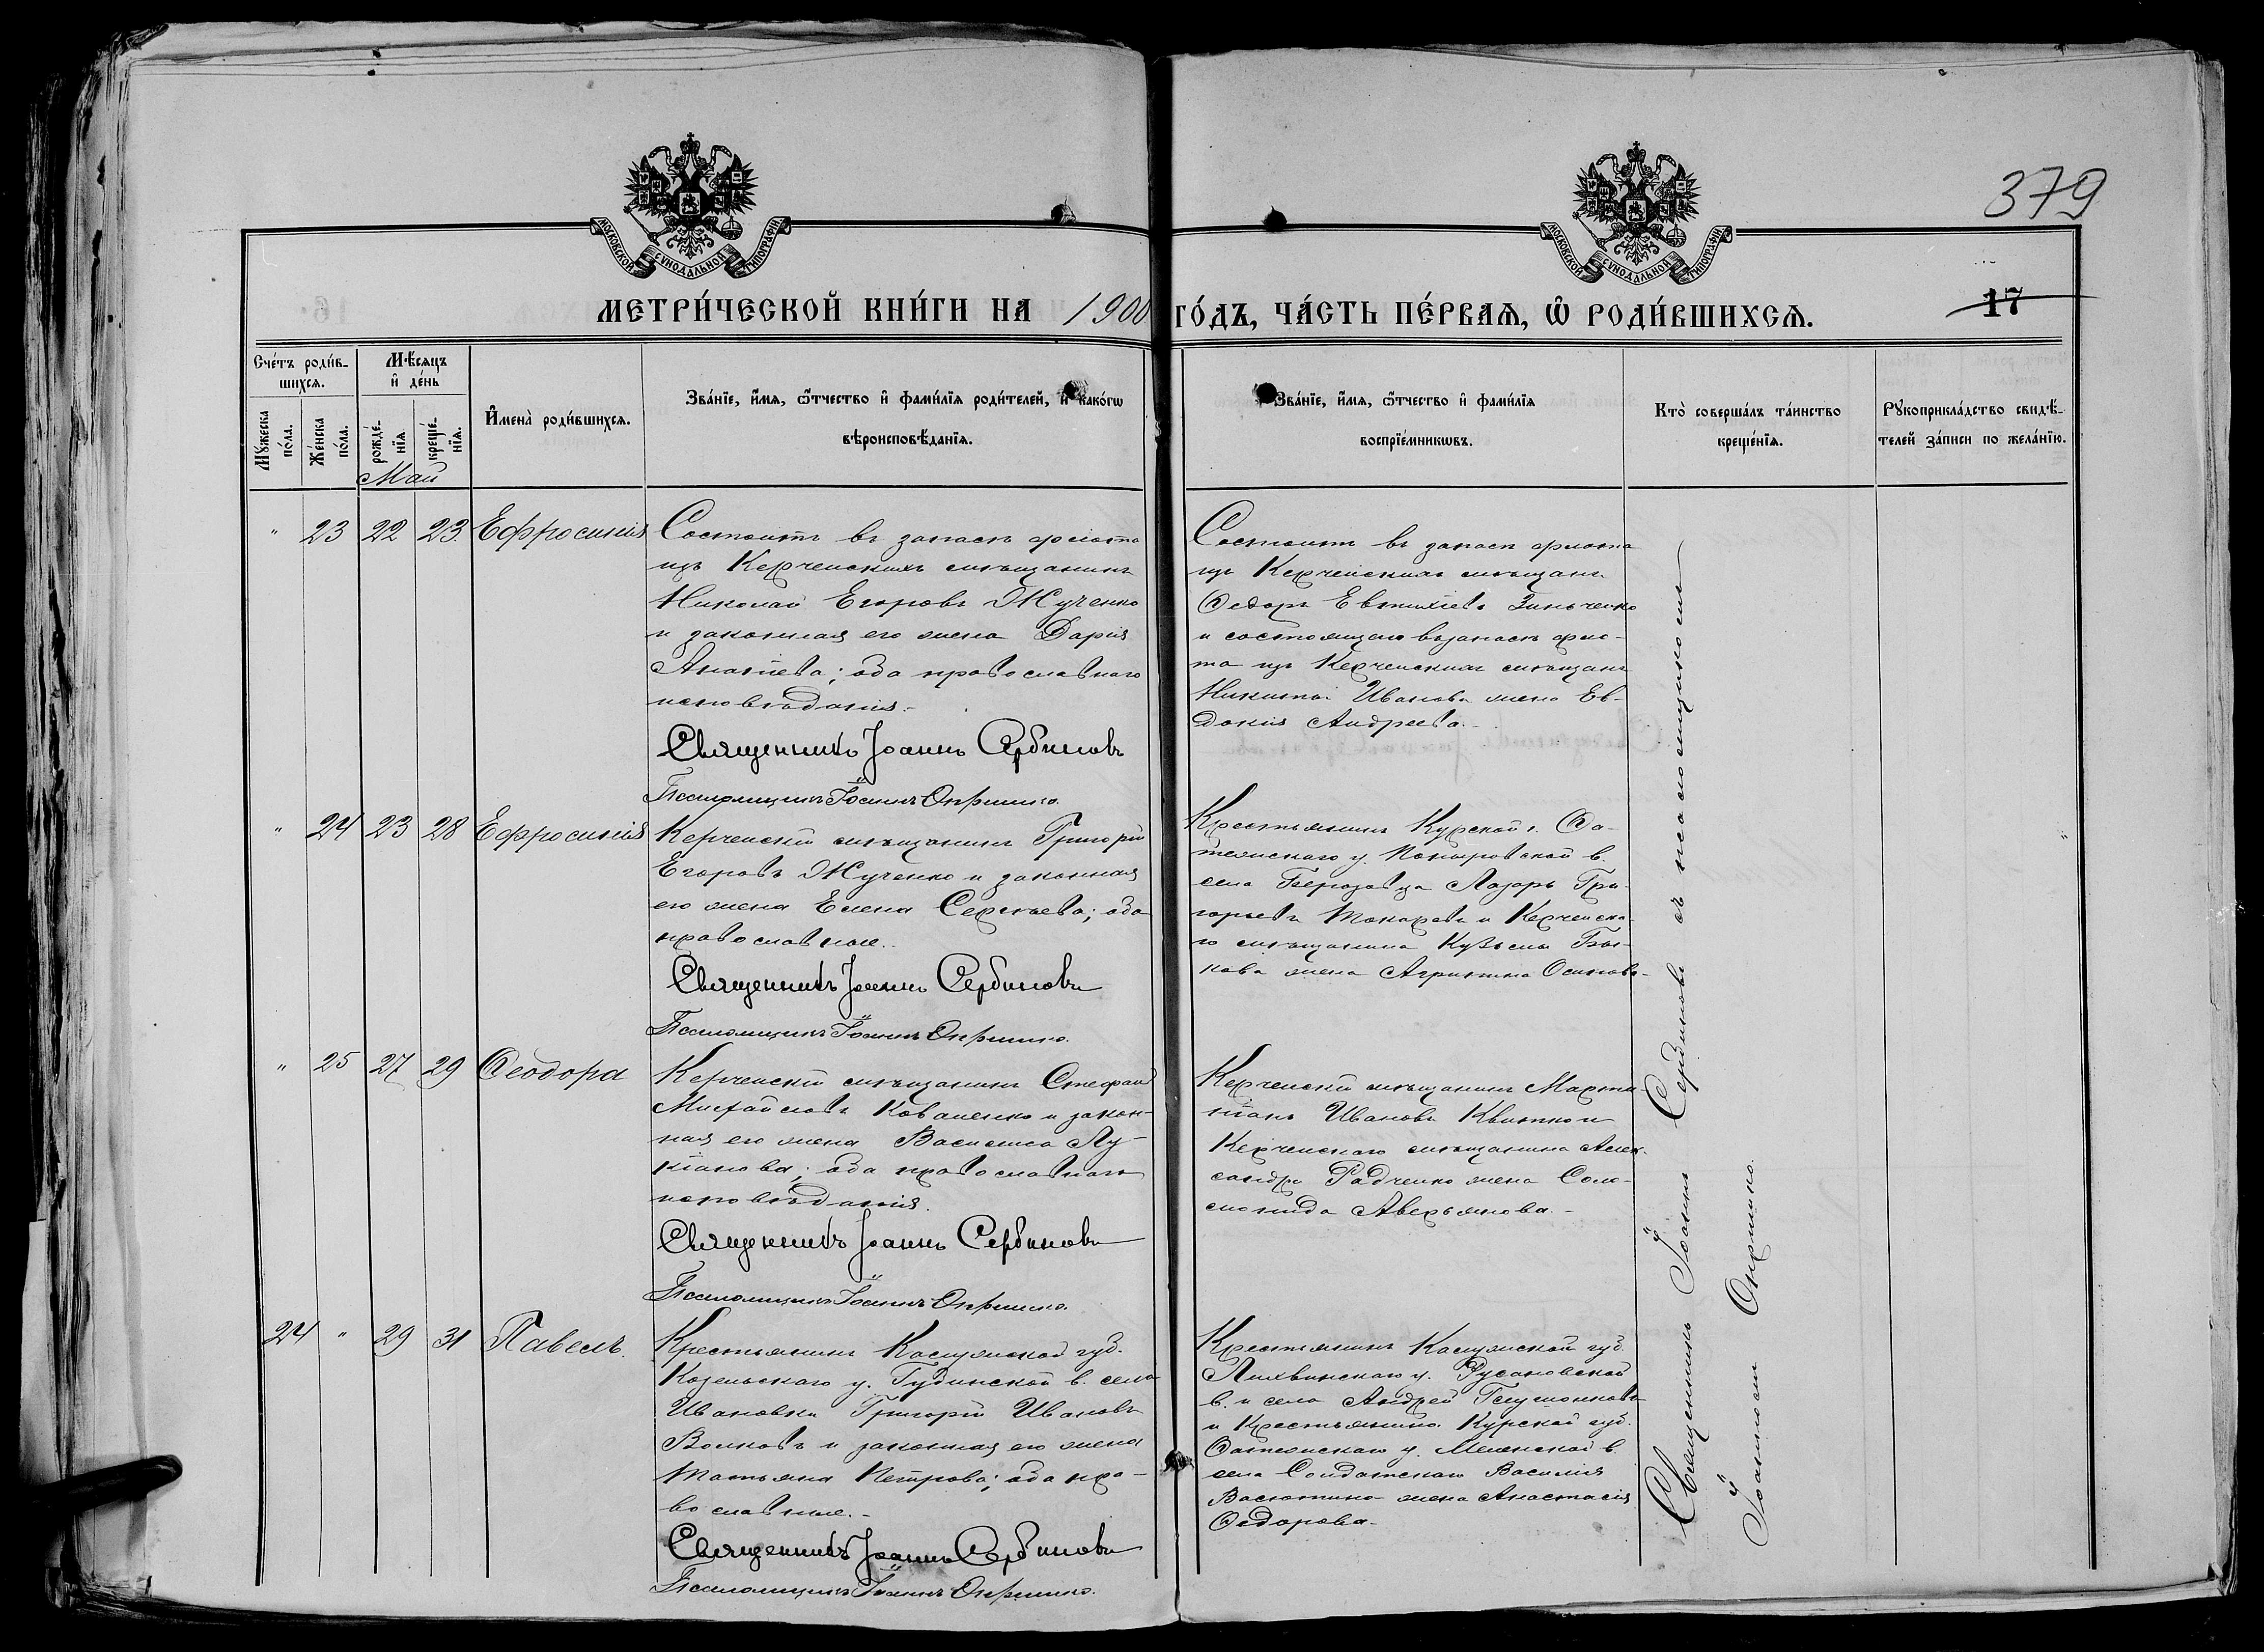 379
МОСКОВСКОЙ СѴНОДАЛЬНОЙ ТИПОГРАФІИ
МОСКОВСКОЙ СѴНОДАЛЬНОЙ ТИПОГРАФІИ
МЕТРИ́ЧЕСКОЙ КНИ́ГИ НА 1900 ГО́ДЪ, ЧА́СТЬ ПЕ́РВАѦ, Ѡ҆ РОДИ́ВШИХСѦ.
17
Сче́тъ роди́в-
шихсѧ.
Мꙋ́жеска по́ла.
Же́нска по́ла.
Мѣ́сѧцъ
и҆ де́нь
рожде́-
нїѧ
креще́-
нїѧ.
И҆мена̀ роди́вшихсѧ.
Зва́нїе, и҆́мѧ, ѻ҆́тчество и҆ фами́лїѧ роди́телей, и҆ како́гѡ
вѣроисповѣ́данїѧ.
Зва́нїе, и҆́мѧ, ѻ҆́тчество и҆ фами́лїѧ
воспрїе́мникѡвъ.
Кто̀ соверша́лъ та́инство
креще́нїѧ.
Рꙋкоприкла́дство свидѣ́-
телей за́писи по жела́нїю.
Май
" 23 22 23. Ефросинія
Состоитъ въ запасѣ флота
изъ Керченскихъ мѣщанинъ
Николай Егоровъ Жученко
и законная его жена Дарія
Ананіева; оба православнаго
исповѣданія.-
Священникъ Іоаннъ Сербиновъ
Псаломщикъ Іоаннъ Окришко.
Состоитъ въ запасѣ флота
изъ Керченскихъ мѣщанъ
Ѳедоръ Евтихіевъ Зинченко
и состоящаго въ запасѣ фло-
та изъ Керченскихъ мѣщанъ
Никиты Иванова жена Ев-
докія Андреева.-
" 24 23 28 Ефросинія
Керченскій мѣщанинъ Григорій
Егоровъ Жученко и законная
его жена Елена Сергѣева; оба
православные.
Священникъ Іоаннъ Сербиновъ
Псаломщикъ Іоаннъ Окришко.
Крестьянинъ Курской г. Ѳа-
тежскаго у. в.
села Лазарь Гри-
горьевъ Токаревъ и Керченска-
го мѣщанина Кузьмы Бы-
кова жена Агрипина Осипова-
" 25 27 29 Ѳеодора
Керченскій мѣщанинъ Стефанъ
Михайловъ Коваленко и закон-
ная его жена Василиса Лу-
кіанова; оба православнаго
исповѣданія.
Священникъ Іоаннъ Сербиновъ
Псаломщикъ Іоаннъ Окришко.
Керченскій мѣщанинъ Марти-
ніанъ Ивановъ Квитко и
Керченскаго мѣщанина Алек-
сандра Радченко жена Соло-
монида Аверьянова.-
24 " 29 31 Павелъ.
Крестьянинъ Калужской губ.
Козельскаго у. в. села
Ивановки Григорій Ивановъ
Волковъ и законная его жена
Татьяна Петрова; оба пра-
вославные.-
Священникъ Іоаннъ Сербиновъ
Псаломщикъ Іоаннъ Окришко.
Крестьянинъ Калужской губ.
Лихвинскаго у. Русановской
в. и села Андрей
и Крестьянина Курской губ.
Ѳатежскаго у. в.
села Солдатскаго Василія
Васютина жена Анастасія
Ѳедорова.-
Священникъ Іоаннъ Сербиновъ съ псаломщикомъ
Іоанномъ Окришко.